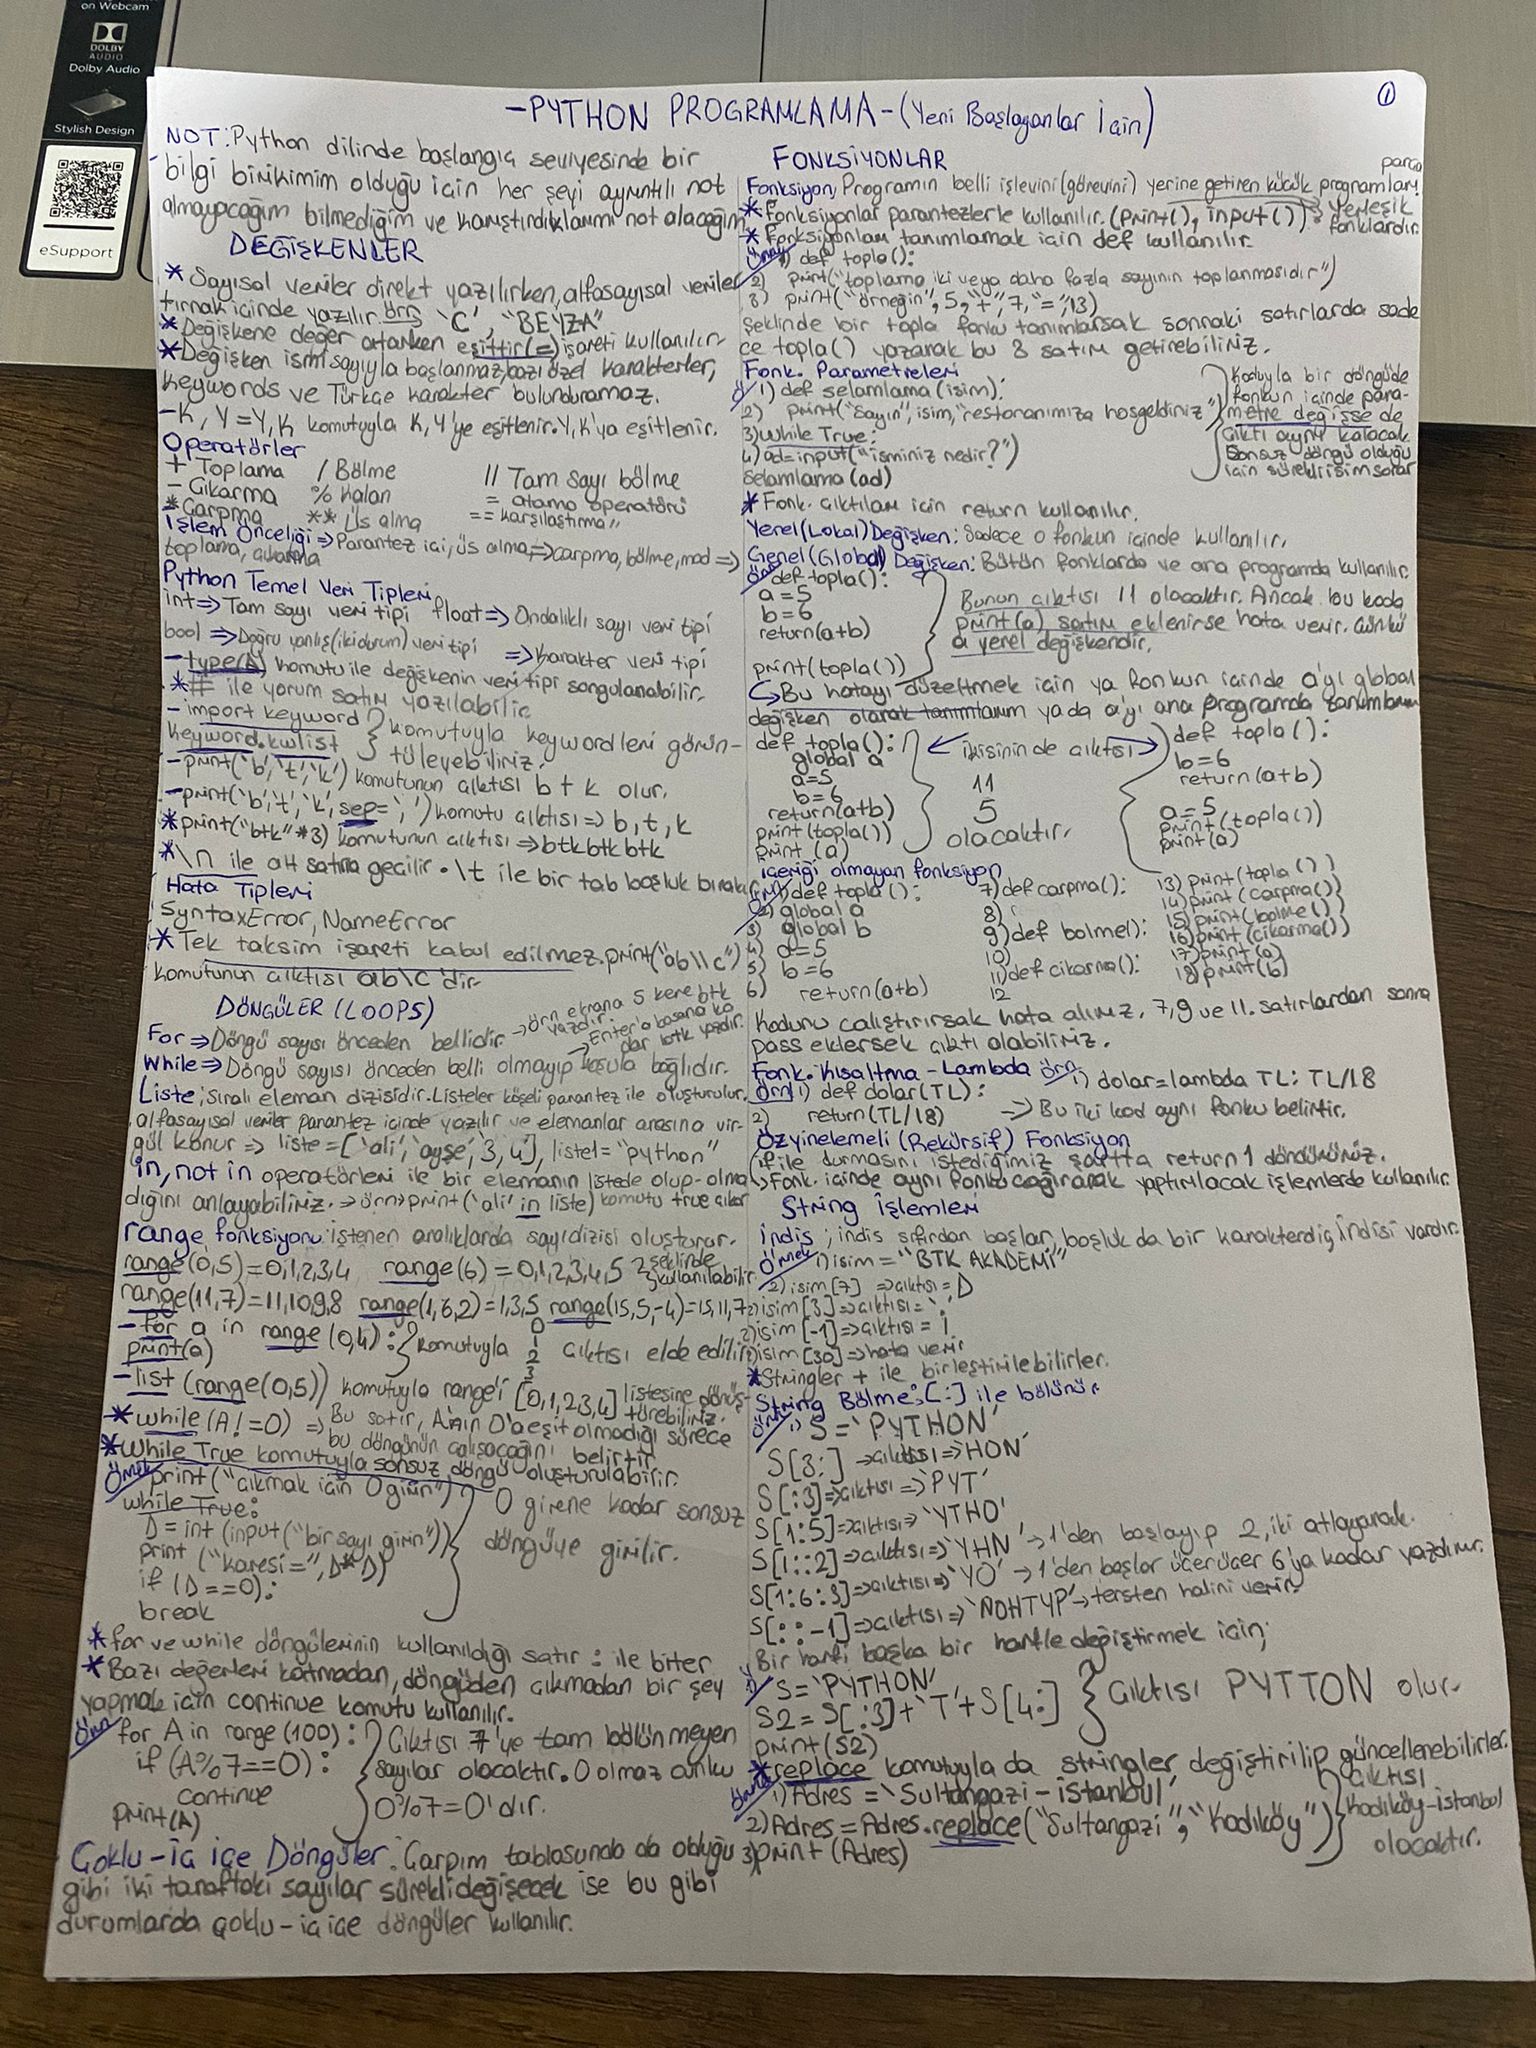 on Webcam
DOLBY
AUDIO
Dolby Audio
Stylish Design
eSupport
①
-PYTHON PROGRAMLAMA-(Yeni Başlayanlar İçin)
NOT: Python dilinde başlangıç seviyesinde bir
bilgi birikimim olduğu için her şeyi ayrıntılı not
almayacağım bilmediğim ve karıştırdıklarımı not alacağım
DEĞİŞKENLER
* Sayısal veriler direkt yazılırken, alfasayısal veriler
tırnak içinde yazılır. örn 'C', "BEYZA"
* Değişkene değer atarken eşittir(=) işareti kullanılır.
* Değişken ismi sayıyla başlanmaz, bazı özel karakterler,
keywords ve Türkçe karakter bulunduramaz.
-K, Y = Y, K komutuyla K, Y'ye eşitlenir. Y, K'ya eşitlenir.
Operatörler
+ Toplama / Bölme // Tam sayı bölme
- Çıkarma % Kalan = atama operatörü
* Çarpma ** Üs alma == karşılaştırma "
İşlem Önceliği => Parantez içi, üs alma, => çarpma, bölme, mod =>
toplama, çıkarma
Python Temel Veri Tipleri
int => Tam sayı veri tipi float => Ondalıklı sayı veri tipi
bool => Doğru yanlış (iki durum) veri tipi => Karakter veri tipi
- type(A) komutu ile değişkenin veri tipi sorgulanabilir.
* # ile yorum satırı yazılabilir
- import keyword } komutuyla keywordleri görün-
keyword.kwlist tüleyebiliriz.
- print('b','t','k') komutunun çıktısı b t k olur.
- print('b','t','k', sep=',') komutu çıktısı => b, t, k
* print("btk"*3) komutunun çıktısı => btkbtkbtk
* \n ile alt satıra geçilir. \t ile bir tab boşluk bırakılır
Hata Tipleri
SyntaxError, NameError
* Tek taksim işareti kabul edilmez. print("ab\\c")
komutunun çıktısı ab\c'dir.
DÖNGÜLER (LOOPS)
For => Döngü sayısı önceden bellidir. → örn ekrana 5 kere btk
yazdır.
While => Döngü sayısı önceden belli olmayıp koşula bağlıdır.
→ Enter'a basana ka
dar btk yazdır.
Liste; sıralı eleman dizisidir. Listeler köşeli parantez ile oluşturulur.
alfasayısal veriler parantez içinde yazılır ve elemanlar arasına vir-
gül konur => liste = ['ali','ayşe',3,4], liste1 = "python"
in, not in operatörleri ile bir elemanın listede olup-olma
dığını anlayabiliriz. → örn → print('ali' in liste) komutu true çıkar
range fonksiyonu: istenen aralıklarda sayı dizisi oluşturur.
range(0,5)=0,1,2,3,4 range(6)=0,1,2,3,4,5 } şeklinde
kullanılabilir
range(11,7)=11,10,9,8 range(1,6,2)=1,3,5 range(15,5,-4)=15,11,7
- for a in range (0,4): } komutuyla 0 1 2 3 çıktısı elde edilir.
print(a)
- list (range(0,5)) komutuyla range'i [0,1,2,3,4] listesine dönüş-
türebiliriz.
* while (A!=0) => Bu satır, A'nın 0'a eşit olmadığı sürece
bu döngünün çalışacağını belirtir.
* While True komutuyla sonsuz döngü oluşturulabilir.
Örnek print("çıkmak için 0 girin")
while True:
D = int (input("bir sayı girin"))
print ("karesi=", D*D)
if (D==0):
break
} 0 girene kadar sonsuz
döngüye girilir.
* for ve while döngülerinin kullanıldığı satır : ile biter
* Bazı değerleri katmadan, döngüden çıkmadan bir şey
yapmak için continue komutu kullanılır.
Örn for A in range (100):
if (A%7==0):
continue
print(A)
} Çıktısı 7'ye tam bölünmeyen
sayılar olacaktır. 0 olmaz çünkü
0%7=0'dır.
Çoklu-iç içe Döngüler: Çarpım tablosunda da olduğu
gibi iki taraftaki sayılar sürekli değişecek ise bu gibi
durumlarda çoklu-iç içe döngüler kullanılır.
FONKSİYONLAR
parça
Fonksiyon; Programın belli işlevini (görevini) yerine getiren küçük programları
* Fonksiyonlar parantezlerle kullanılır. (print(), input()) → yerleşik
fonklardır.
* Fonksiyonları tanımlamak için def kullanılır.
Örnek 1) def topla():
2) print("toplama iki veya daha fazla sayının toplanmasıdır")
3) print("örneğin", 5, "+", 7, "=", 13)
şeklinde bir topla fonku tanımlarsak sonraki satırlarda sade
ce topla() yazarak bu 3 satırı getirebiliriz.
Fonk. Parametreleri
Ö 1) def selamlama (isim):
2) print("Sayın", isim, "restoranımıza hoşgeldiniz")
3) while True:
4) ad=input("isminiz nedir?")
selamlama (ad)
Koduyla bir döngüde
fonkun içinde para-
metre değişse de
çıktı aynı kalacak
Sonsuz döngü olduğu
için sürekli isim sorar
* Fonk. çıktıları için return kullanılır.
Yerel (Lokal) Değişken: Sadece o fonkun içinde kullanılır.
Genel (Global) Değişken: Bütün fonklarda ve ana programda kullanılır.
Örn def topla():
a=5
b=6
return(a+b)
print(topla())
Bunun çıktısı 11 olacaktır. Ancak bu koda
print(a) satırı eklenirse hata verir. Çünkü
a yerel değişkendir.
↪ Bu hatayı düzeltmek için ya fonkun içinde a'yı global
değişken olarak tanımlarım ya da a'yı ana programda tanımlarım
def topla():
global a
a=5
b=6
return(a+b)
print(topla())
print (a)
← ikisinin de çıktısı →
11
5
olacaktır.
def topla():
b=6
return(a+b)
a=5
print(topla())
print(a)
içeriği olmayan fonksiyon
Örn 1) def topla(): 7) def carpma(): 13) print(topla())
2) global a 8) 14) print(carpma())
3) global b 9) def bolme(): 15) print(bolme())
4) a=5 10) 16) print(cikarma())
5) b=6 11) def cikarma(): 17) print(a)
6) return(a+b) 12 18) print(b)
Kodunu çalıştırırsak hata alırız. 7, 9 ve 11. satırlardan sonra
pass eklersek çıktı alabiliriz.
Fonk. Kısaltma - Lambda örn 1) dolar=lambda TL: TL/18
Örn 1) def dolar(TL):
2) return(TL/18) → Bu iki kod aynı fonku belirtir.
Özyinelemeli (Rekürsif) Fonksiyon
if ile durmasını istediğimiz şartta return 1 döndürürüz.
→ Fonk. içinde aynı fonku çağırarak yaptırılacak işlemlerde kullanılır.
String İşlemleri
İndis; indis sıfırdan başlar, boşluk da bir karakterdir, indisi vardır.
Örnek 1) isim = "BTK AKADEMİ"
2) isim [7] => çıktısı = D
2) isim [3] => çıktısı = ' '
2) isim [-1] => çıktısı = İ
2) isim [30] => hata verir
* Stringler + ile birleştirilebilirler.
String Bölme; [:] ile bölünür.
Örn 1) S = 'PYTHON'
S[3:] => çıktısı => 'HON'
S[:3] => çıktısı => 'PYT'
S[1:5] => çıktısı => 'YTHO'
S[1::2] => çıktısı => 'YHN' → 1'den başlayıp 2, iki atlayarak.
S[1:6:3] => çıktısı => 'YO' → 1'den başlar üçer üçer 6'ya kadar yazdırır.
S[::-1] => çıktısı => 'NOHTYP' → tersten halini verir.
Bir harfi başka bir harfle değiştirmek için;
S='PYTHON'
S2 = S[:3]+'T'+S[4:]
print(S2)
} Çıktısı PYTTON olur.
* replace komutuyla da stringler değiştirilip güncellenebilirler.
Örnek 1) Adres = 'Sultangazi-istanbul'
2) Adres = Adres.replace("Sultangazi", "Kadıköy")
3) print (Adres)
çıktısı
Kadıköy-istanbul
olacaktır.